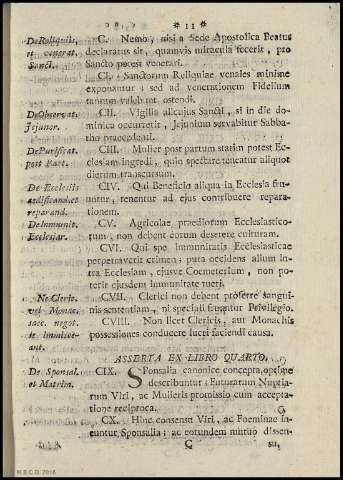 * 11 *
De Reliquiis, C. Nemo, nisi a Sede Apostolica Beatus
et venerat. declaratus sit, quamvis miracula fecerit, pro
Sanct. Sancto potest venerari.
CI. Sanctorum Reliquiae venales minime
exponantur; sed ad venerationem Fidelium
tantum valebunt ostendi.
De Observat. CII. Vigilia alicujus Sancti, si in die do-
Jejunor. minica occurrerit, Jejunium servabitur Sabba-
tho praecedenti.
De Purificat. CIII. Mulier post partum statim potest Ec-
post Part. clesiam ingredi, quin spectare teneatur aliquot
dierum transcursum.
De Ecclesiis CIV. Qui Beneficio aliqua in Ecclesia fru-
aedificand. et untur, tenentur ad ejus contribuere repara-
reparand. tionem.
De Immunit. CV. Agricolae praediorum Ecclesiastico-
Ecclesiar. rum, non debent eorum deserere culturam.
CVI. Qui spe immunitatis Ecclesiasticae
perpetraverit crimen: puta occidens alium in-
tra Ecclesiam, ejusve Coemeterium, non po-
terit ejusdem immunitate tueri.
Ne Cleric. CVII. Clerici non debent proferre sangui-
vel Monac. nis sententiam, ni speciali fruantur Privilegio.
saec. negot. CVIII. Non licet Clericis, aut Monachis
se immisce- possessiones conducere lucri faciendi causa.
ant.
ASSERTA EX LIBRO QUARTO.
De Sponsal. CIX. Sponsalia canonice concepta, optime
et Matrim. describuntur: Futurarum Nuptia-
rum Viri, ac Mulieris promissio cum accepta-
tione reciproca.
CX. Hinc consensu Viri, ac Foeminae in-
euntur Sponsalia: ac eorundem mutuo dissen-
C su,
B.S.C.D. 2018